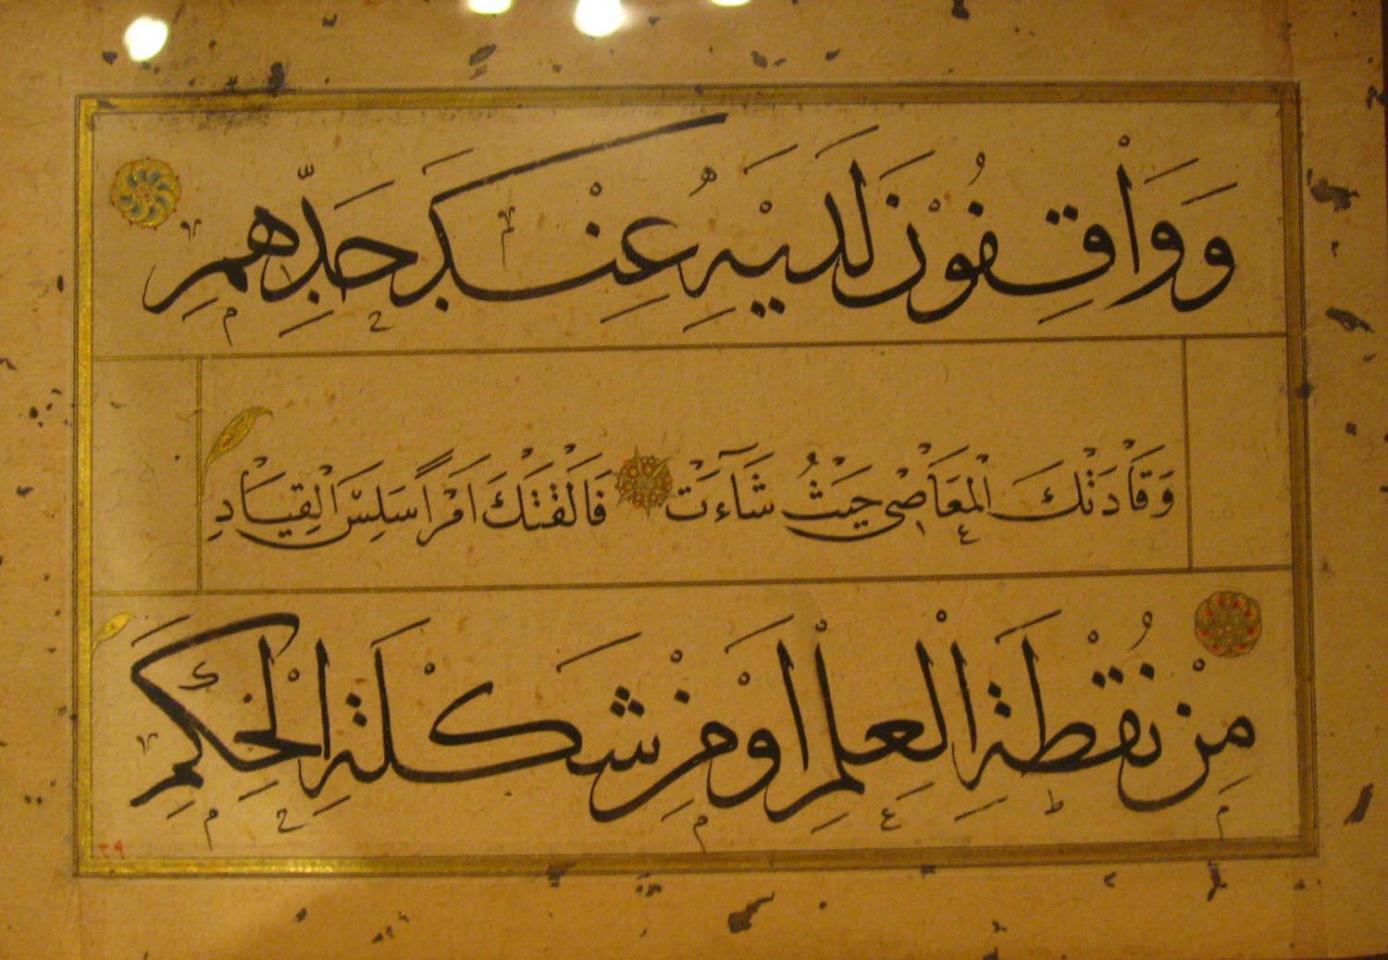 وَوَاقِفُوْنَ لَدَيْهِ عِنْدَ حَدِّهِمِ
وَقَادَتْكَ الْمَعَاصِيْ حَيْثُ شَآءَتْ فَالْفَتْكَ امْرَأً سَلِسَ الْقِيَادِ
مِنْ نُقْطَةِ الْعِلْمِ اَوْ مِنْ شَكْلَةِ الْحِكَمِ
٢٩